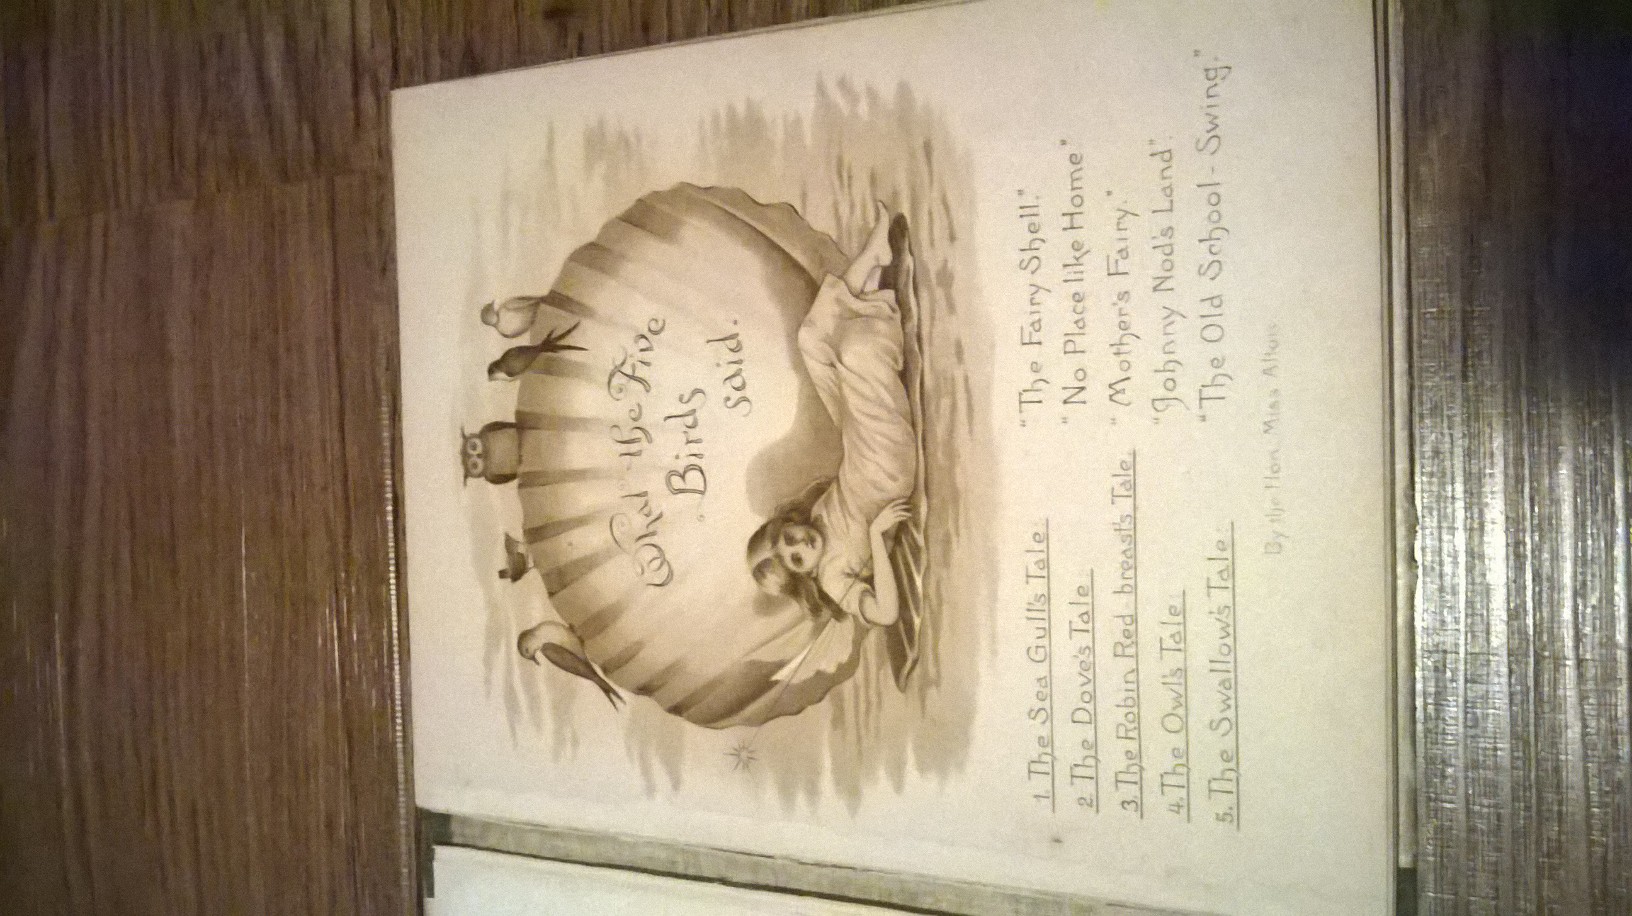 What the Five
Birds
said.
1. The Sea Gull's Tale: "The Fairy Shell."
2. The Dove's Tale: "No Place like Home"
3. The Robin Red-breast's Tale. "Mother's Fairy."
4. The Owl's Tale: "Johnny Nod's Land".
5. The Swallow's Tale: "The Old School-Swing."
By the Hon. Miss Alton